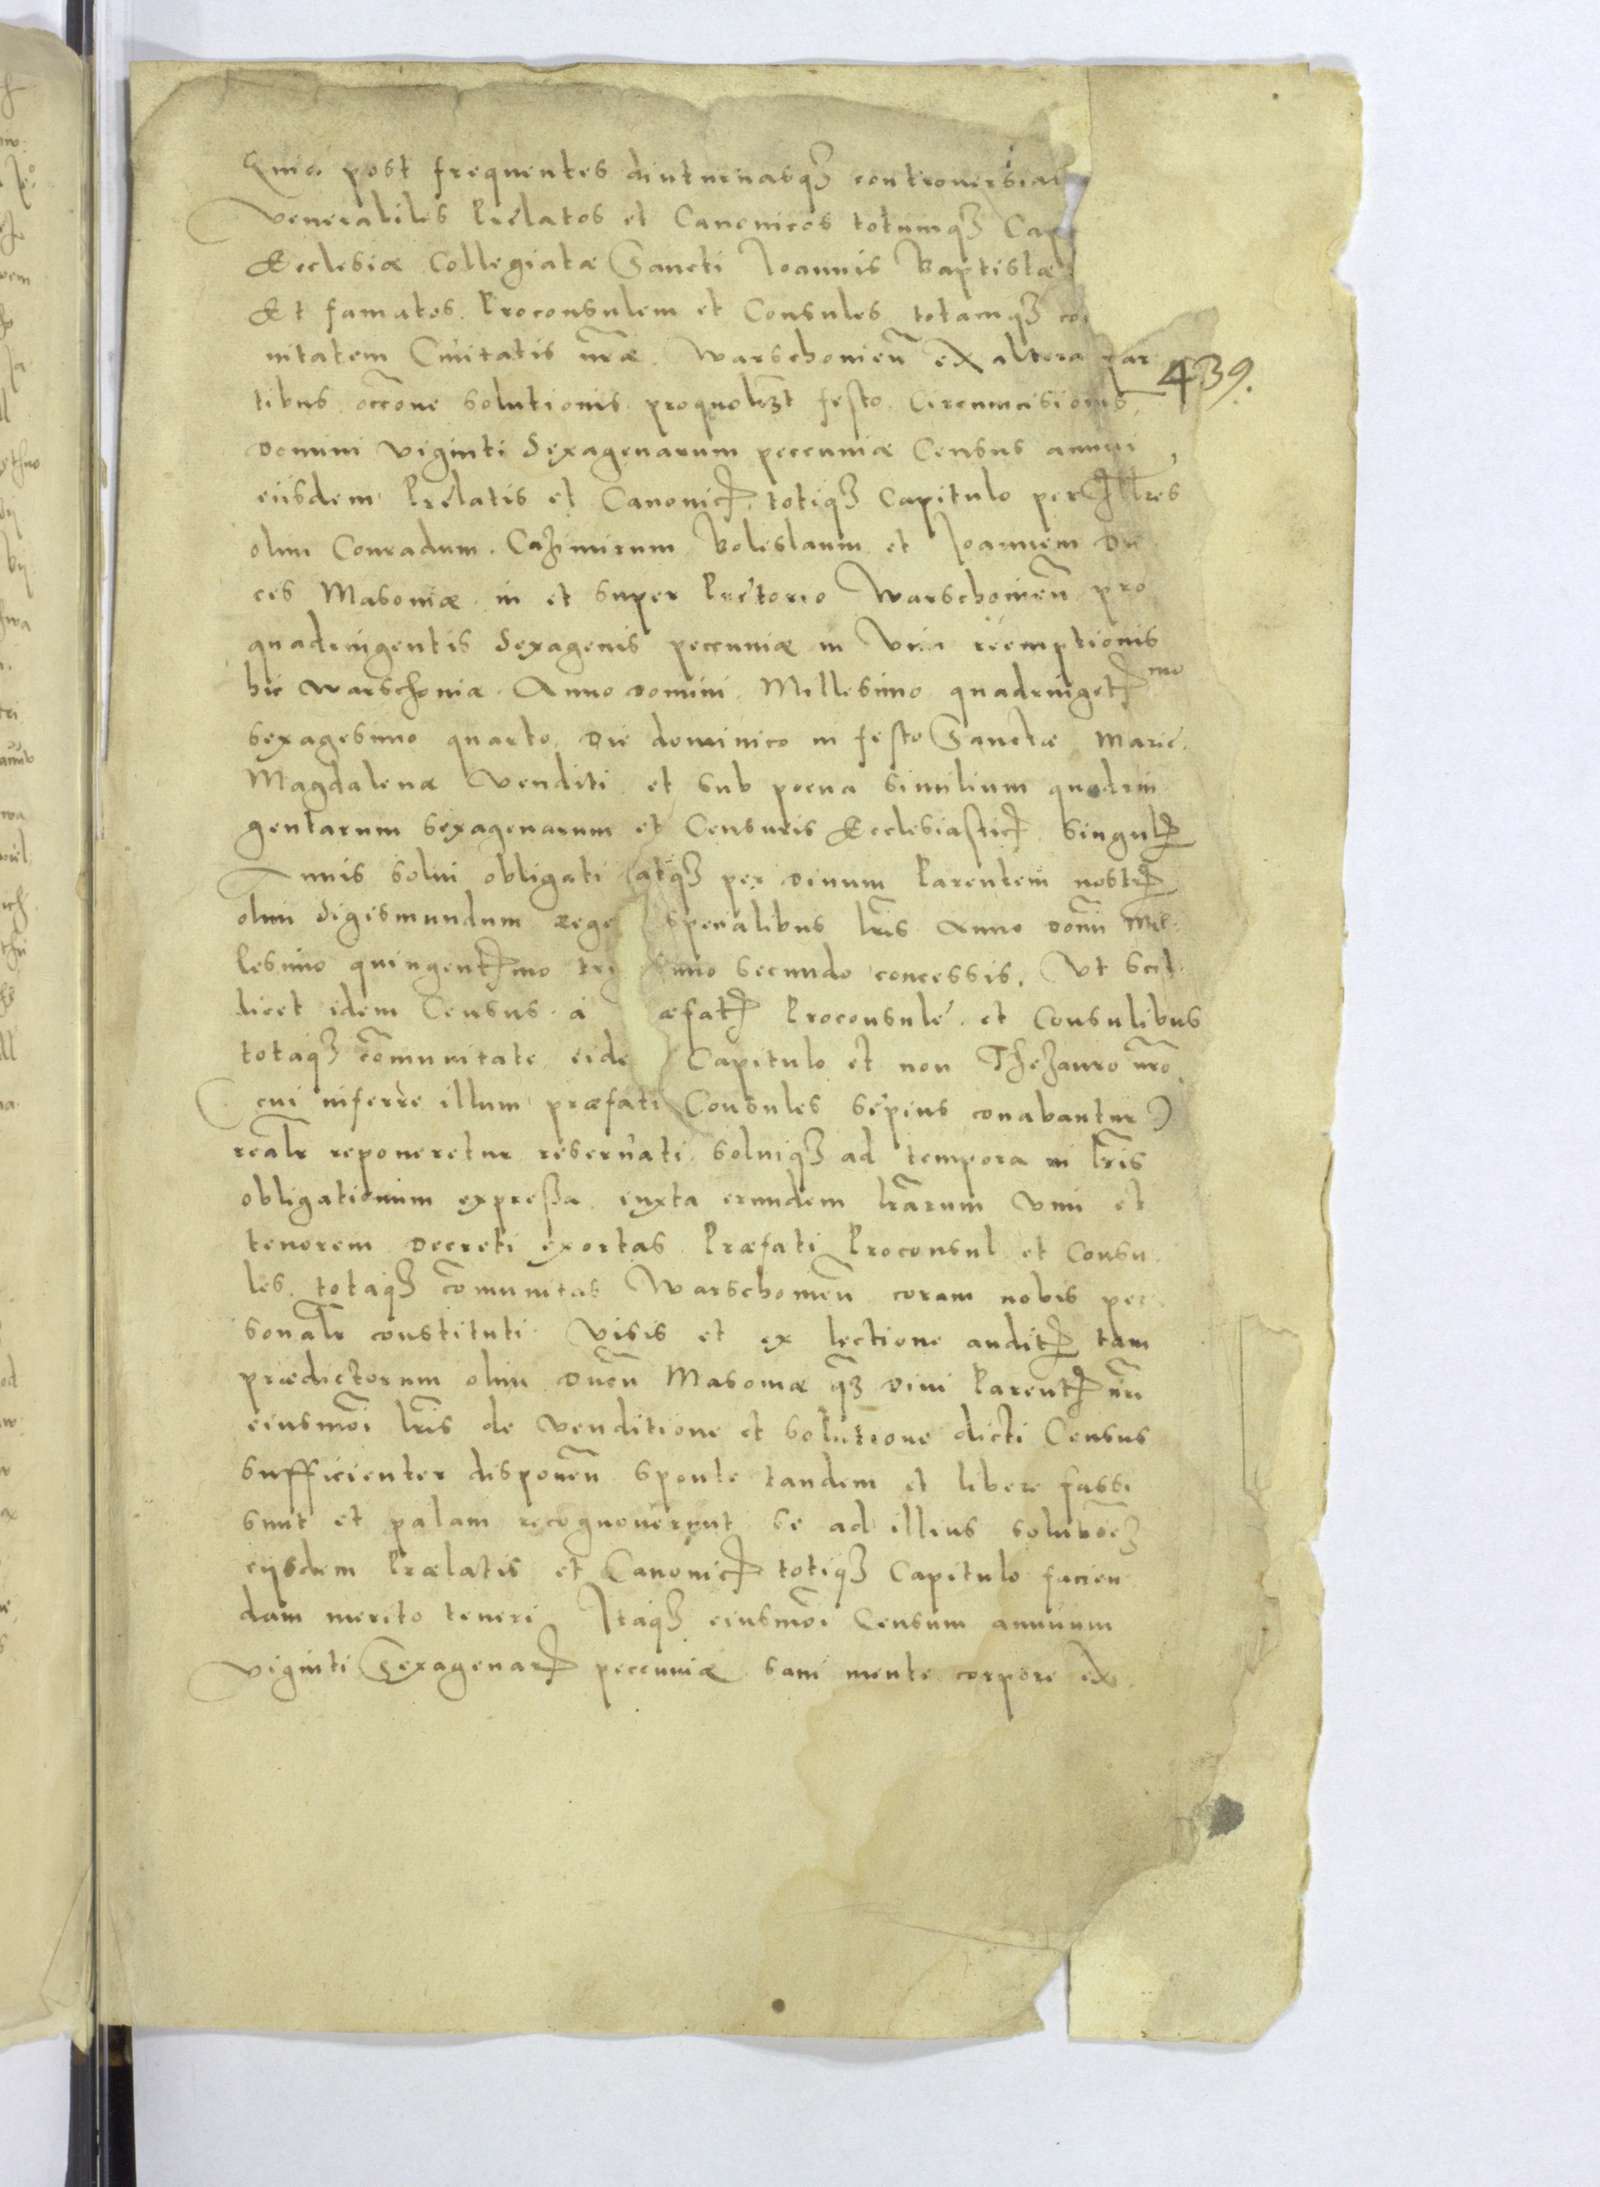 Quia post frequentes diuturnasqꝫ controuersias
Venerabiles Prelatos et Canonicos totumqꝫ Cap
Ecclesiæ Collegiatæ Sancti Joannis Baptistæ
Et famatos Proconsulem et Consules totamqꝫ co
nitatem Ciuitatis nr̃æ Warschouien̄ ex altera par
439.
tibus occ̃one solutionis proquolibꝫt festo Circumcisionis
Domini viginti Sexagenarum peccuniæ Census annui
eiisdem Prelatis et Canonicꝭ totiqꝫ Capitulo per Ill̃res
olim Conradum Cazimirum Boleslaum et Joannem Du
ces Masouiæ in et super Pretorio Warschouien̄ pro
quadringentis Sexagenis peccuniæ in vim reemptionis
hic Warschouiæ Anno Domini Millesimo quadringetꝭmo
sexagesimo quarto Die dominico in festo Sanctæ Marie
Magdalenæ Venditi et sub poena similium quadrin
gentarum sexagenarum et Censuris Ecclesiasticꝭ singulꝭ
Annis solui obligati atqꝫ per Diuum Parentem nostrꝭ
olim Sigismundum Rege specialibus lr̃is Anno Domi Mil
lesimo quingentꝭmo tri simo secundo concessis, Vt scil
licet idem Census a æfatꝭ Proconsule et Consulibus
totaqꝫ com̃unitate eide Capitulo et non Thezauro nr̃o
(cui inferre illum præfati Consules sepius conabantur)
realr̃ reponeretur reseruati soluiqꝫ ad tempora in lr̃is
obligationum expressa iuxta earundem lr̃arum vim et
tenorem Decreti exortas Præfati Proconsul et Consu
les totaqꝫ com̃unitas Warschouien̄ coram nobis per
sonalr̃ constituti Visis et ex lectione auditꝭ tam
prædictorum olim Ducũ Masouiæ qꝫ Diui Parentꝭ nr̃i
eiusmo͂i lr̃is de venditione et solutione dicti Census
sufficienter disponen̄ sponte tandem et libere fassi
sunt et palam recognouerunt se ad illius soluto͂eꝫ
eysdem Prælatis et Canonicꝭ totiqꝫ Capitulo facien
dam merito teneri Itaqꝫ eiusmo͂i Censum annuum
viginti Sexagenarꝭ peccuniæ sani mente corpore ex